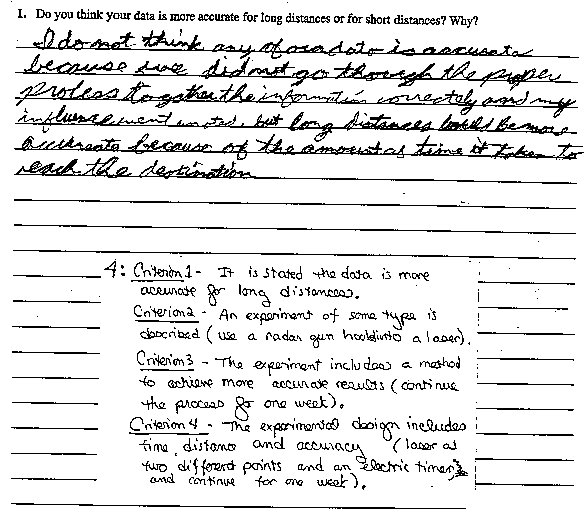 1. Do you think your data is more accurate for long distances or for short distances? Why?
I do not think any of our data is accurate
because we did not go through the proper
process to gather the information correctly and my
influence went unnoted, but long distances could be more
accurate because of the amount of time it takes to
reach the destination
4: Criterion 1 - It is stated the data is more
accurate for long distances.
Criterion 2 - An experiment of some type is
described (use a radar gun hooked into a laser).
Criterion 3 - The experiment includes a method
to achieve more accurate results (continue
the process for one week).
Criterion 4 - The experimental design includes
time, distance and accuracy (laser at
two different points and an electric timer,
and continue for one week).